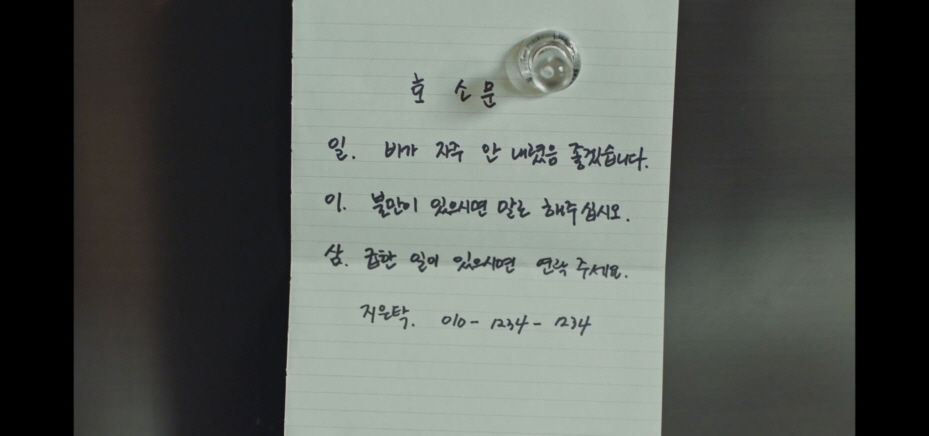 호 소 문
일. 비가 자주 안 내렸음 좋겠습니다.
이. 불만이 있으시면 말로 해주십시오.
삼. 급한 일이 있으시면 연락 주세요.
지은탁. 010 - 1234 - 1234